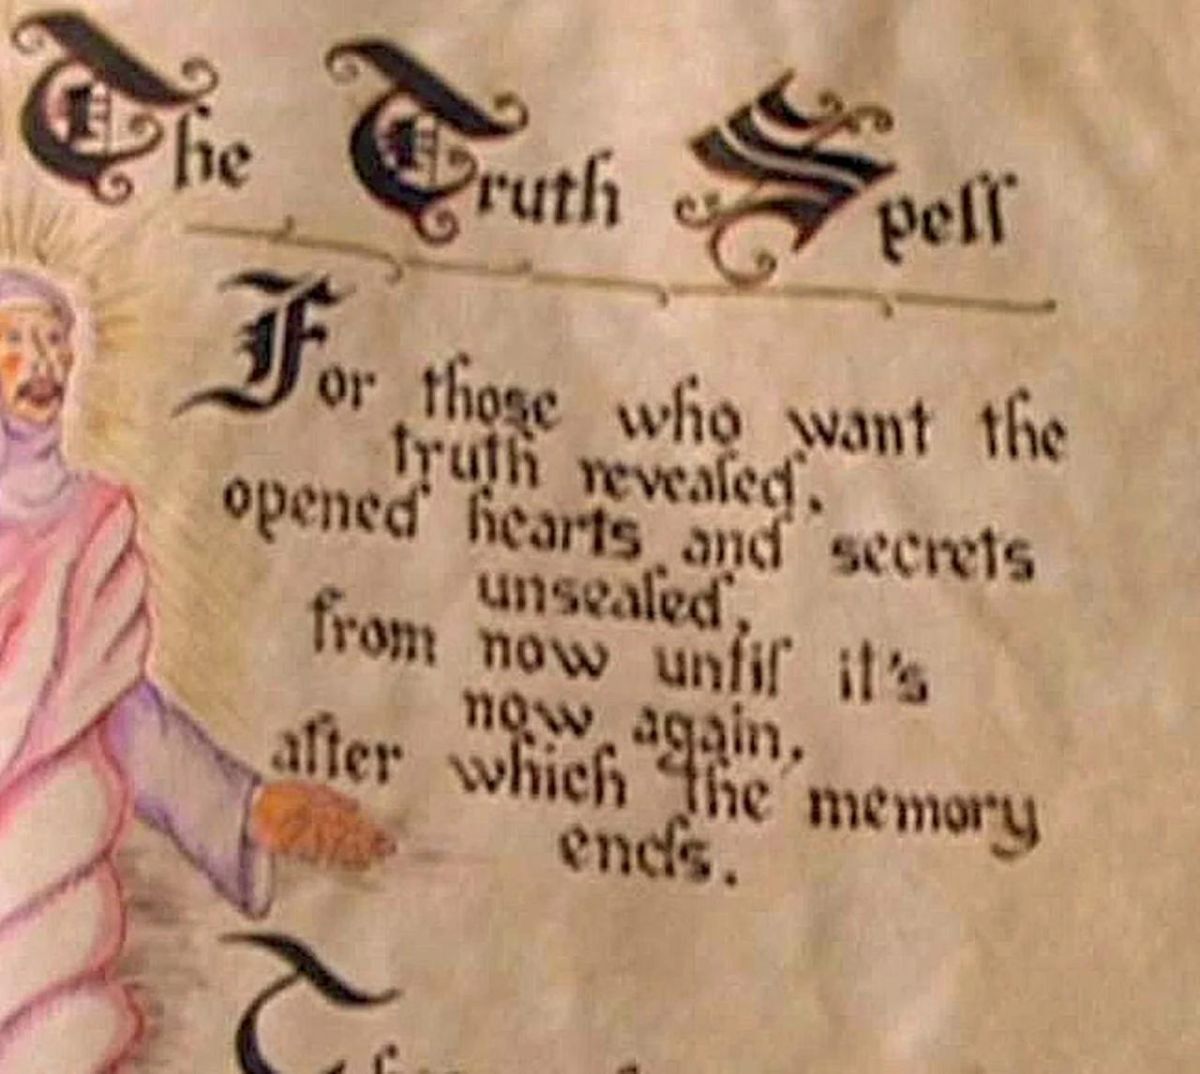 The Truth Spell
For those who want the
truth revealed,
opened hearts and secrets
unsealed,
from now until it's
now again,
after which the memory
ends.